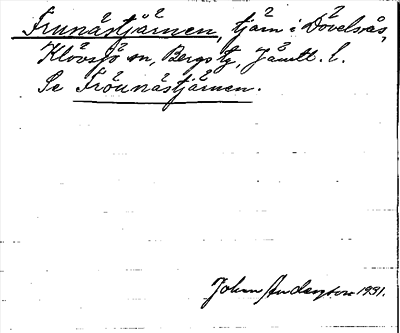 Frunästjärnen, tjärn i Dövelsås,
Klövsjö sn, Bergs tg, Jämtl. l.
Se Fröunästjärnen.
John Anderzon 1931.